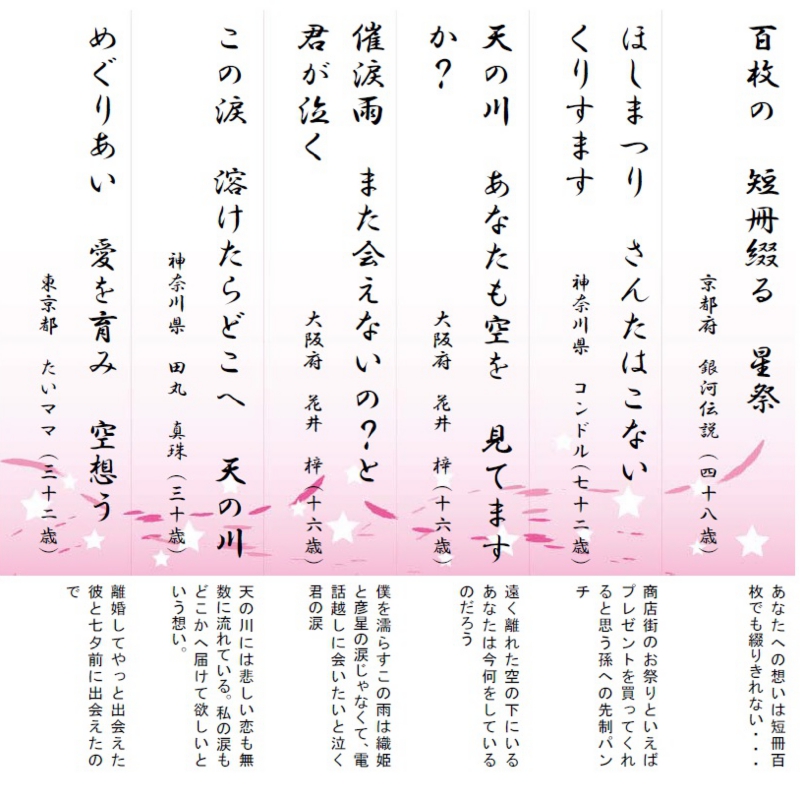 百枚の　短冊綴る　星祭
京都府　銀河伝説（四十八歳）
あなたへの想いは短冊百
枚でも綴りきれない・・・
ほしまつり　さんたはこない
くりすます
神奈川県　コンドル（七十二歳）
商店街のお祭りといえば
プレゼントを買ってくれ
ると思う孫への先制パン
チ
天の川　あなたも空を　見てます
か？
大阪府　花井　梓（十六歳）
遠く離れた空の下にいる
あなたは今何をしている
のだろう
催涙雨　また会えないの？と
君が泣く
大阪府　花井　梓（十六歳）
僕を濡らすこの雨は織姫
と彦星の涙じゃなくて、電
話越しに会いたいと泣く
君の涙
この涙　溶けたらどこへ　天の川
神奈川県　田丸　真珠（三十歳）
天の川には悲しい恋も無
数に流れている。私の涙も
どこかへ届けて欲しいと
いう想い。
めぐりあい　愛を育み　空想う
東京都　たいママ（三十二歳）
離婚してやっと出会えた
彼と七夕前に出会えたの
で